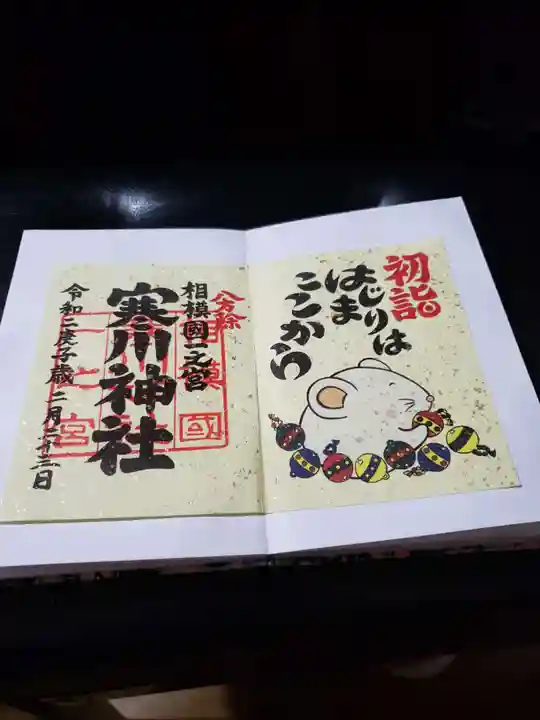 初詣
はじまりは
ここから
八方除
相模國一之宮
寒川神社
令和二庚子歳 二月二十三日
相模國
一之宮